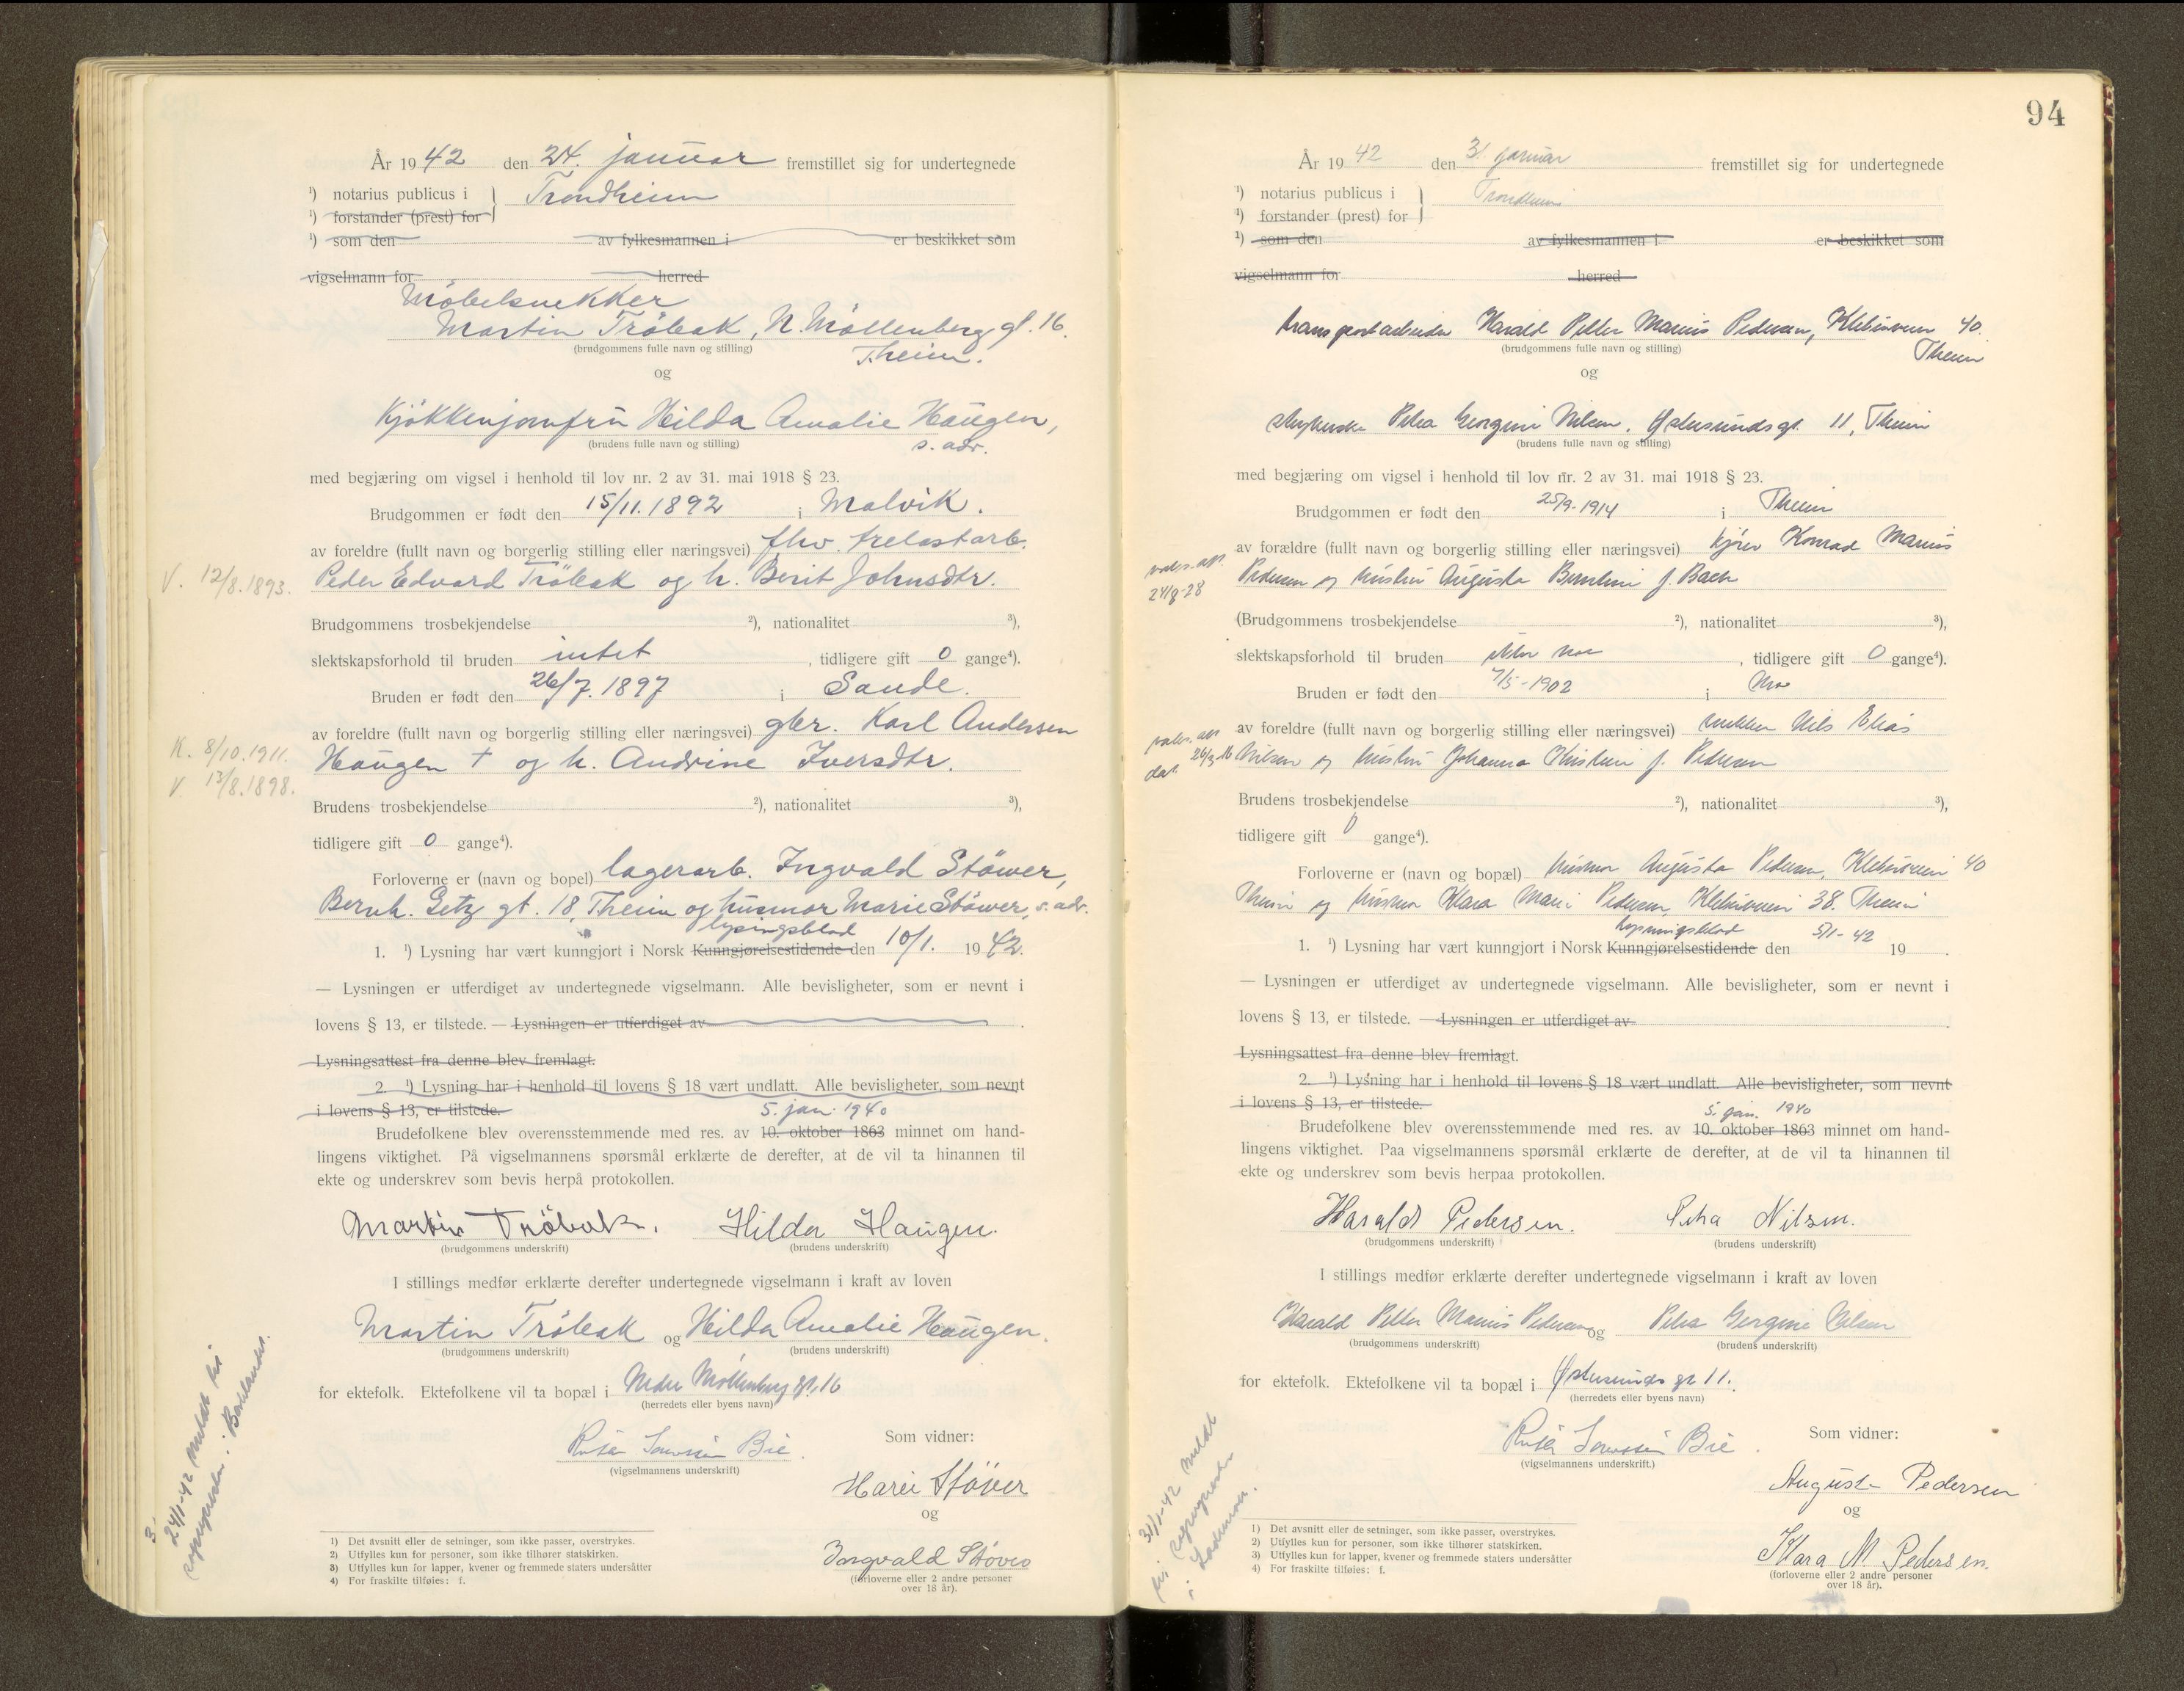 År 1942 den 24. januar fremstillet sig for undertegnede
¹) notarius publicus i } Trondheim
¹) forstander (prest) for
¹) som den av fylkesmannen i er beskikket som
vigselmann for herred
Möbelsnekker
Martin Tröbak, N. Möllenberg gt. 16.
(brudgommens fulle navn og stilling) Theim.
og
Kjökkenjomfru Hilda Amalie Haugen,
(brudens fulle navn og stilling) s. adr.
med begjæring om vigsel i henhold til lov nr. 2 av 31. mai 1918 § 23.
Brudgommen er født den 15/11. 1892 i Malvik.
av foreldre (fullt navn og borgerlig stilling eller næringsvei) fhv. trelastarb.
V. 12/8. 1893. Peder Edvard Tröbak og h. Berit Johnsdtr.
Brudgommens trosbekjendelse ²), nationalitet ³),
slektskapsforhold til bruden intet , tidligere gift 0 gange⁴).
Bruden er født den 26/7. 1897 i Sande.
av foreldre (fullt navn og borgerlig stilling eller næringsvei) gbr. Karl Andersen
K. 8/10. 1911. Haugen † og h. Andrine Iversdtr.
V. 13/8. 1898.
Brudens trosbekjendelse ²), nationalitet ³),
tidligere gift 0 gange⁴).
Forloverne er (navn og bopel) lagerarb. Ingvald Stöwer,
Bernh. Getz gt. 18, Theim og husmor Marie Stöwer, s. adr.
lysingsblad
1. ¹) Lysning har vært kunngjort i Norsk Kunngjørelsestidende den 10/1. 1942.
— Lysningen er utferdiget av undertegnede vigselmann. Alle bevisligheter, som er nevnt i
lovens § 13, er tilstede. — Lysningen er utferdiget av .
Lysningsattest fra denne blev fremlagt.
2. ¹) Lysning har i henhold til lovens § 18 vært undlatt. Alle bevisligheter, som nevnt
i lovens § 13, er tilstede. 5. jan. 1940
Brudefolkene blev overensstemmende med res. av 10. oktober 1863 minnet om hand-
lingens viktighet. På vigselmannens spørsmål erklærte de derefter, at de vil ta hinannen til
ekte og underskrev som bevis herpå protokollen.
Martin Tröbak. Hilda Haugen.
(brudgommens underskrift) (brudens underskrift)
I stillings medfør erklærte derefter undertegnede vigselmann i kraft av loven
Martin Tröbak og Hilda Amalie Haugen.
(brudgommens underskrift) (brudens underskrift)
for ektefolk. Ektefolkene vil ta bopæl i Nedre Möllenberg gt. 16
(herredets eller byens navn)
Bie. Som vidner:
(vigselmannens underskrift)
Marie Stöver
og
Ingvald Stöver
(forloverne eller 2 andre personer
over 18 år).
24/1-42 meldt til
sognepresten i Bakklandet.
3.
1) Det avsnitt eller de setninger, som ikke passer, overstrykes.
2) Utfylles kun for personer, som ikke tilhører statskirken.
3) Utfylles kun for lapper, kvener og fremmede staters undersåtter
4) For fraskilte tilføies: f.
94
År 1942 den 31 januar fremstillet sig for undertegnede
¹) notarius publicus i } Trondheim
¹) forstander (prest) for
¹) som den av fylkesmannen i er beskikket som
vigselmann for herred
transportarbeider Harald Petter Marius Pedersen, Klebuveien 40.
(brudgommens fulle navn og stilling) Theim
og
Petra Georgine Nilsen, Østersundsgt. 11, Theim
(brudens fulle navn og stilling)
med begjæring om vigsel i henhold til lov nr. 2 av 31. mai 1918 § 23.
Brudgommen er født den 25/9-1914 i Theim
av forældre (fullt navn og borgerlig stilling eller næringsvei) kjörer Konrad Marius
vaks. att. 24/8-28 Pedersen og hustru Augusta Berntine f. Bach
(Brudgommens trosbekjendelse ²), nationalitet ³),
slektskapsforhold til bruden , tidligere gift 0 gange⁴).
Bruden er født den 7/5-1902 i Mo
av foreldre (fullt navn og borgerlig stilling eller næringsvei) snekker Nils Elias
vaks. att. Nilsen og hustru Johanna Kristine f. Pedersen
Brudens trosbekjendelse ²), nationalitet ³),
tidligere gift 0 gange⁴).
Forloverne er (navn og bopæl) husmor Augusta Pedersen, Klebuveien 40
Theim og husmor Klara Marie Pedersen, Klebuveien 38. Theim
Lysningsblad
1. ¹) Lysning har vært kunngjort i Norsk Kunngjørelsestidende den 5/1-42 19 .
— Lysningen er utferdiget av undertegnede vigselmann. Alle bevisligheter, som er nevnt i
lovens § 13, er tilstede. — Lysningen er utferdiget av .
Lysningsattest fra denne blev fremlagt.
2. ¹) Lysning har i henhold til lovens § 18 vært undlatt. Alle bevisligheter, som nevnt
i lovens § 13, er tilstede. 5. jan. 1940
Brudefolkene blev overensstemmende med res. av 10. oktober 1863 minnet om hand-
lingens viktighet. Paa vigselmannens spørsmål erklærte de derefter, at de vil ta hinannen til
ekte og underskrev som bevis herpaa protokollen.
Harald Pedersen. Petra Nilsen.
(brudgommens underskrift) (brudens underskrift)
I stillings medfør erklærte derefter undertegnede vigselmann i kraft av loven
Harald Petter Marius Pedersen og Petra Georgine Nilsen
(brudgommens underskrift) (brudens underskrift)
for ektefolk. Ektefolkene vil ta bopæl i Østersunds gt 11.
(herredets eller byens navn)
Bie. Som vidner:
(vigselmannens underskrift.)
Augusta Pedersen
og
Klara M. Pedersen.
(forloverne eller 2 andre personer
over 18 år).
31/1-42 meldt
til sognepresten
i Lademoen.
1) Det avsnitt eller de setninger, som ikke passer, overstrykes.
2) Utfylles kun for personer, som ikke tilhører statskirken.
3) Utfylles kun for lapper, kvener og fremmede staters undersåtter
4) For fraskilte tilføies: f.